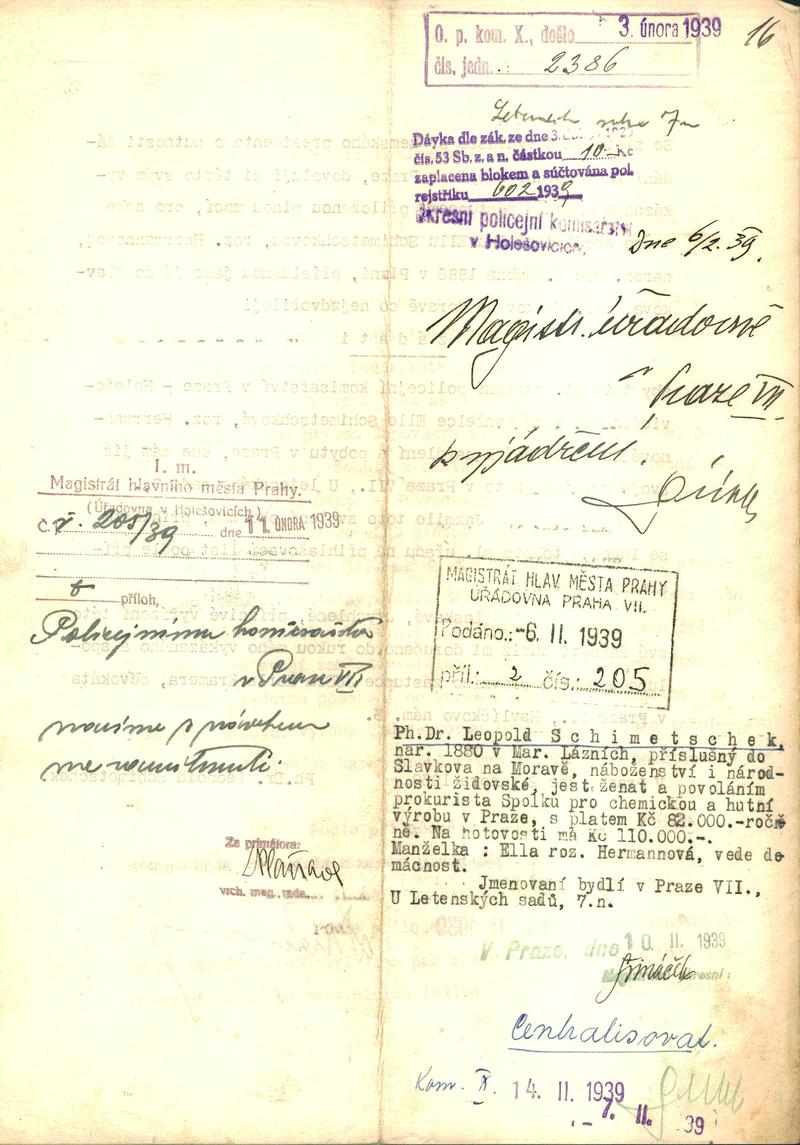 16
O. p. kom. X., došlo 3. února 1939
čís. jedn. 2386
Dávka dle zák. ze dne 3.
čís. 53 Sb. z. a n. částkou 10.- Kč
zaplacena blokem a súčtována pol.
rejstříku 602 1939
Okresní policejní komisařství
v Holešovicích,
Dne 6/2. 39.
Magistr. úřadovně
v Praze VII.
k vyjádření.
I. m.
Magistrát hlavního města Prahy.
(Úřadovna v Holešovicích.)
Č. ř. 205/39 dne 11. ÚNORA 1939
příloh,
Policejnímu komisařství
v Praze VII
vracíme s návrhem
Za primátora:
vrch. mag. rada.
MAGISTRÁT HLAV. MĚSTA PRAHY
ÚŘADOVNA PRAHA VII.
Podáno: -6. II. 1939
příl.: 2 čís.: 205
Ph.Dr. Leopold S c h i m e t s c h e k,
nar. 1880 v Mar. Lázních, příslušný do
Slavkova na Moravě, náboženství i národ-
nosti židovské, jest ženat a povoláním
prokurista Spolku pro chemickou a hutní
výrobu v Praze, s platem Kč 82.000.-roč-
ně. Na hotovosti má Kč 110.000.-.
Manželka : Ella roz. Hermannová, vede do
mácnost.
Jmenovaní bydlí v Praze VII.,
U Letenských sadů, 7.n.
V Praze, dne 10. II 1939
Centralisovat.
Kom. X. 14. II. 1939
7. II. 39